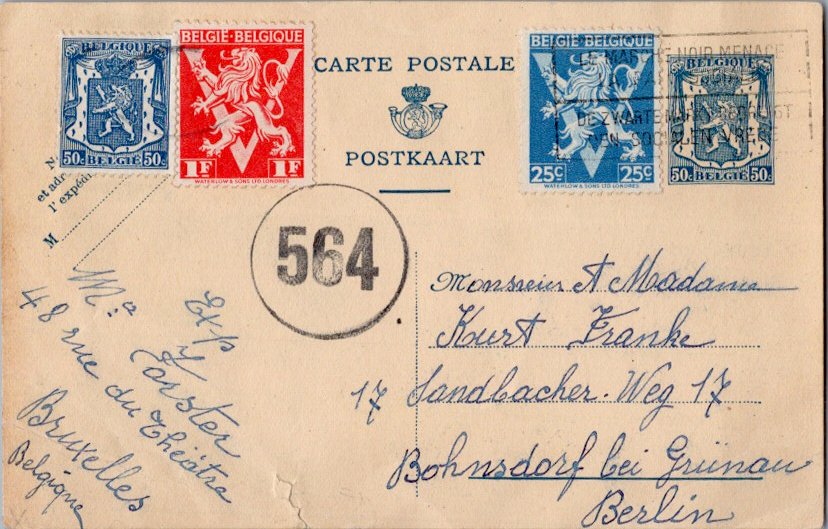 BELGIQUE
50c BELGIË 50c
BELGIË-BELGIQUE
1F 1F
WATERLOW & SONS LTD. LONDRES
CARTE POSTALE
POSTKAART
BELGIE-BELGIQUE
25c 25c
WATERLOW & SONS LTD. LONDRES
LE NOIR MENACE
DE ZWARTE
VAN
BELGIQUE
50c BELGIË 50c
N.
et adr
l'expédi
M
564
Exp
Forster
48 rue du Théâtre
Bruxelles
Belgique
Monsieur et Madame
Kurt Franke
17 Sandbacher-Weg 17
Bohnsdorf bei Grünau
Berlin